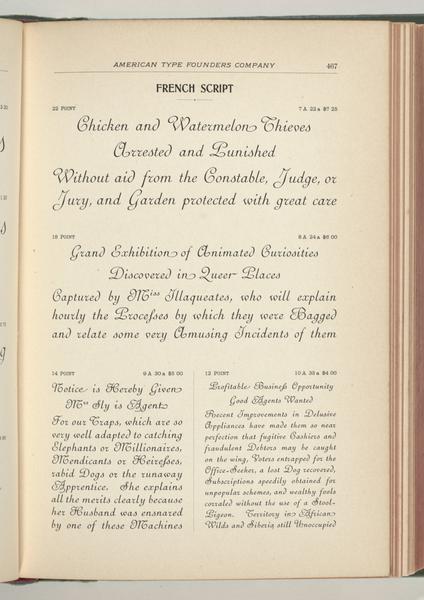 AMERICAN TYPE FOUNDERS COMPANY 467
FRENCH SCRIPT
22 POINT 7 A 22 a $7 25
Chicken and Watermelon Thieves
Arrested and Punished
Without aid from the Constable, Judge, or
Jury, and Garden protected with great care
18 POINT 8 A 24 a $6 00
Grand Exhibition of Animated Curiosities
Discovered in Queer Places
Captured by Miss Illaqueates, who will explain
hourly the Processes by which they were Bagged
and relate some very Amusing Incidents of them
14 POINT 9 A 30 a $5 00
Notice is Hereby Given
Mrs Fly is Agent
For our Traps, which are so
very well adapted to catching
Elephants or Millionaires,
Mendicants or Heiresses,
rabid Dogs or the runaway
Apprentice. She explains
all the merits clearly because
her Husband was ensnared
by one of these Machines
12 POINT 10 A 35 a $4 00
Profitable Business Opportunity
Good Agents Wanted
Recent Improvements in Delusive
Appliances have made them so near
perfection that fugitive Cashiers and
fraudulent Debtors may be caught
on the wing, Voters entrapped for the
Office-Seeker, a lost Dog recovered,
Subscriptions speedily obtained for
unpopular schemes, and wealthy fools
corraled without the use of a Stool-
Pigeon. Territory in African
Wilds and Siberia still Unoccupied